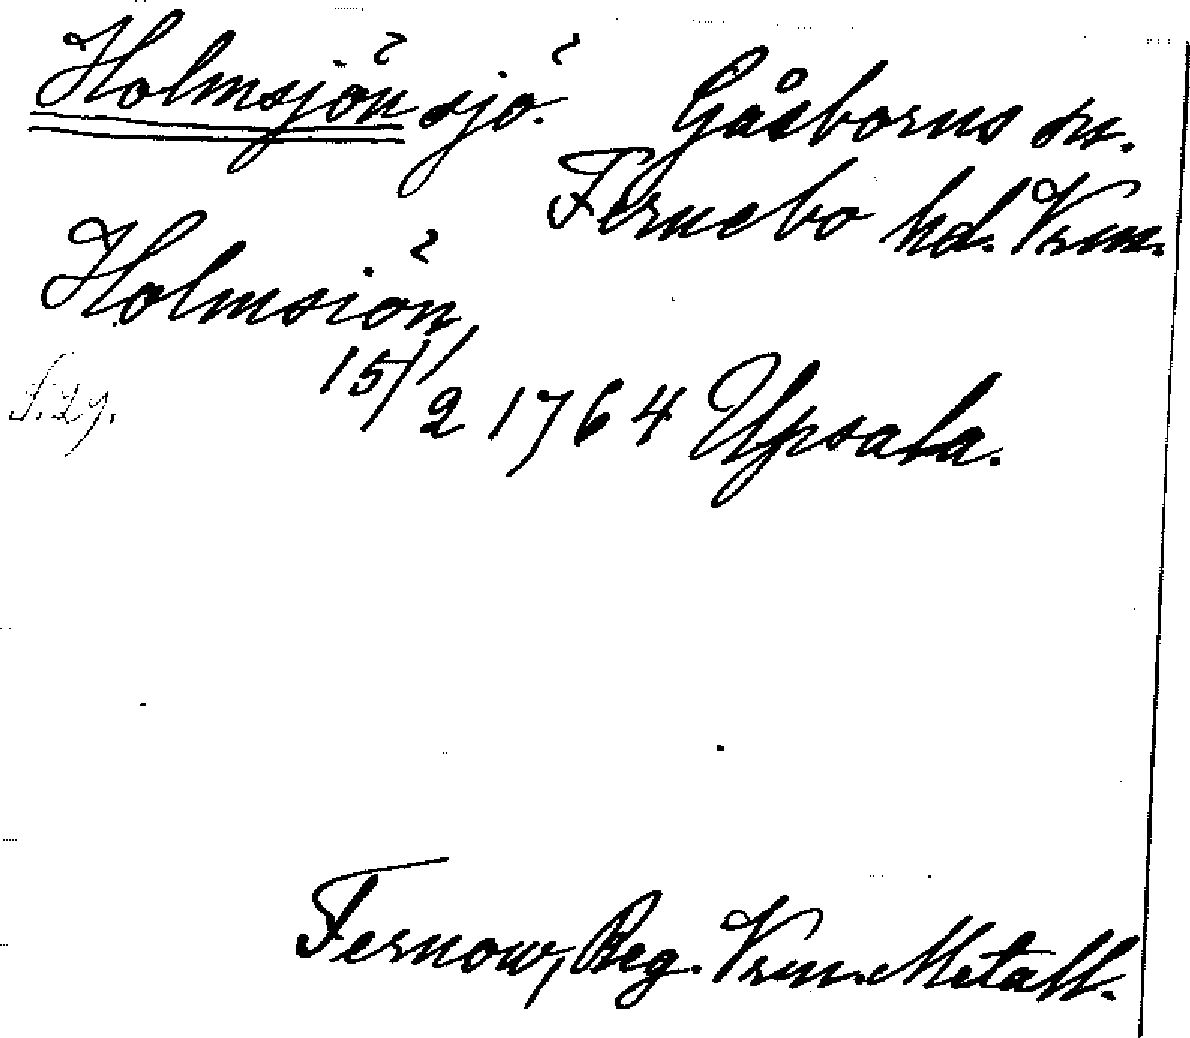 Holmsjön sjö. Gåsborns sn.
Fernebo hd. Vrm.
Holmsiön,
S. 29. 15/2 1764 Upsala.
Fernow, Beg. Vrm. Metall.